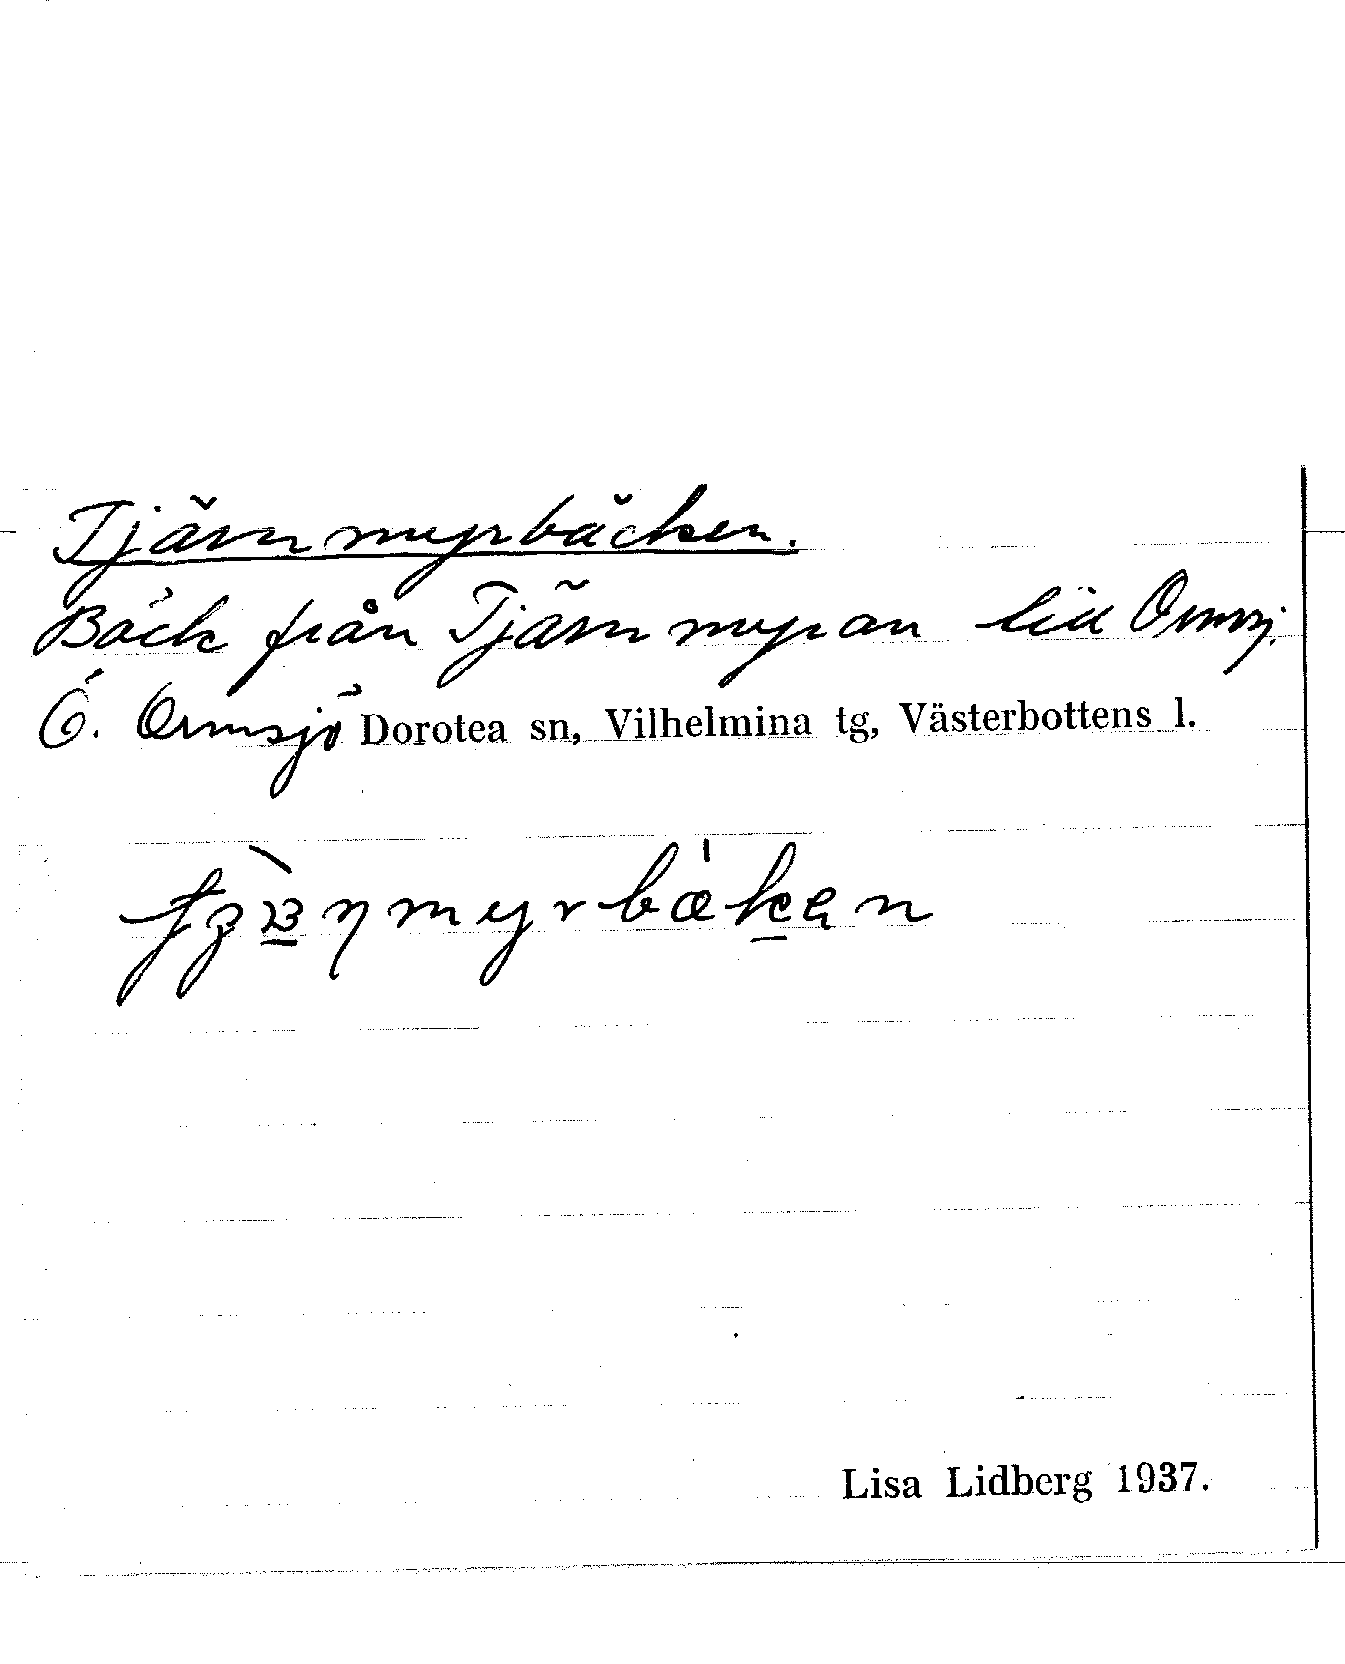 Tjärnmyrbäcken.
Bäck från Tjärnmyran till Ormsj.
Ö. Ormsjö Dorotea sn, Vilhelmina tg, Västerbottens l.
Lisa Lidberg 1937.